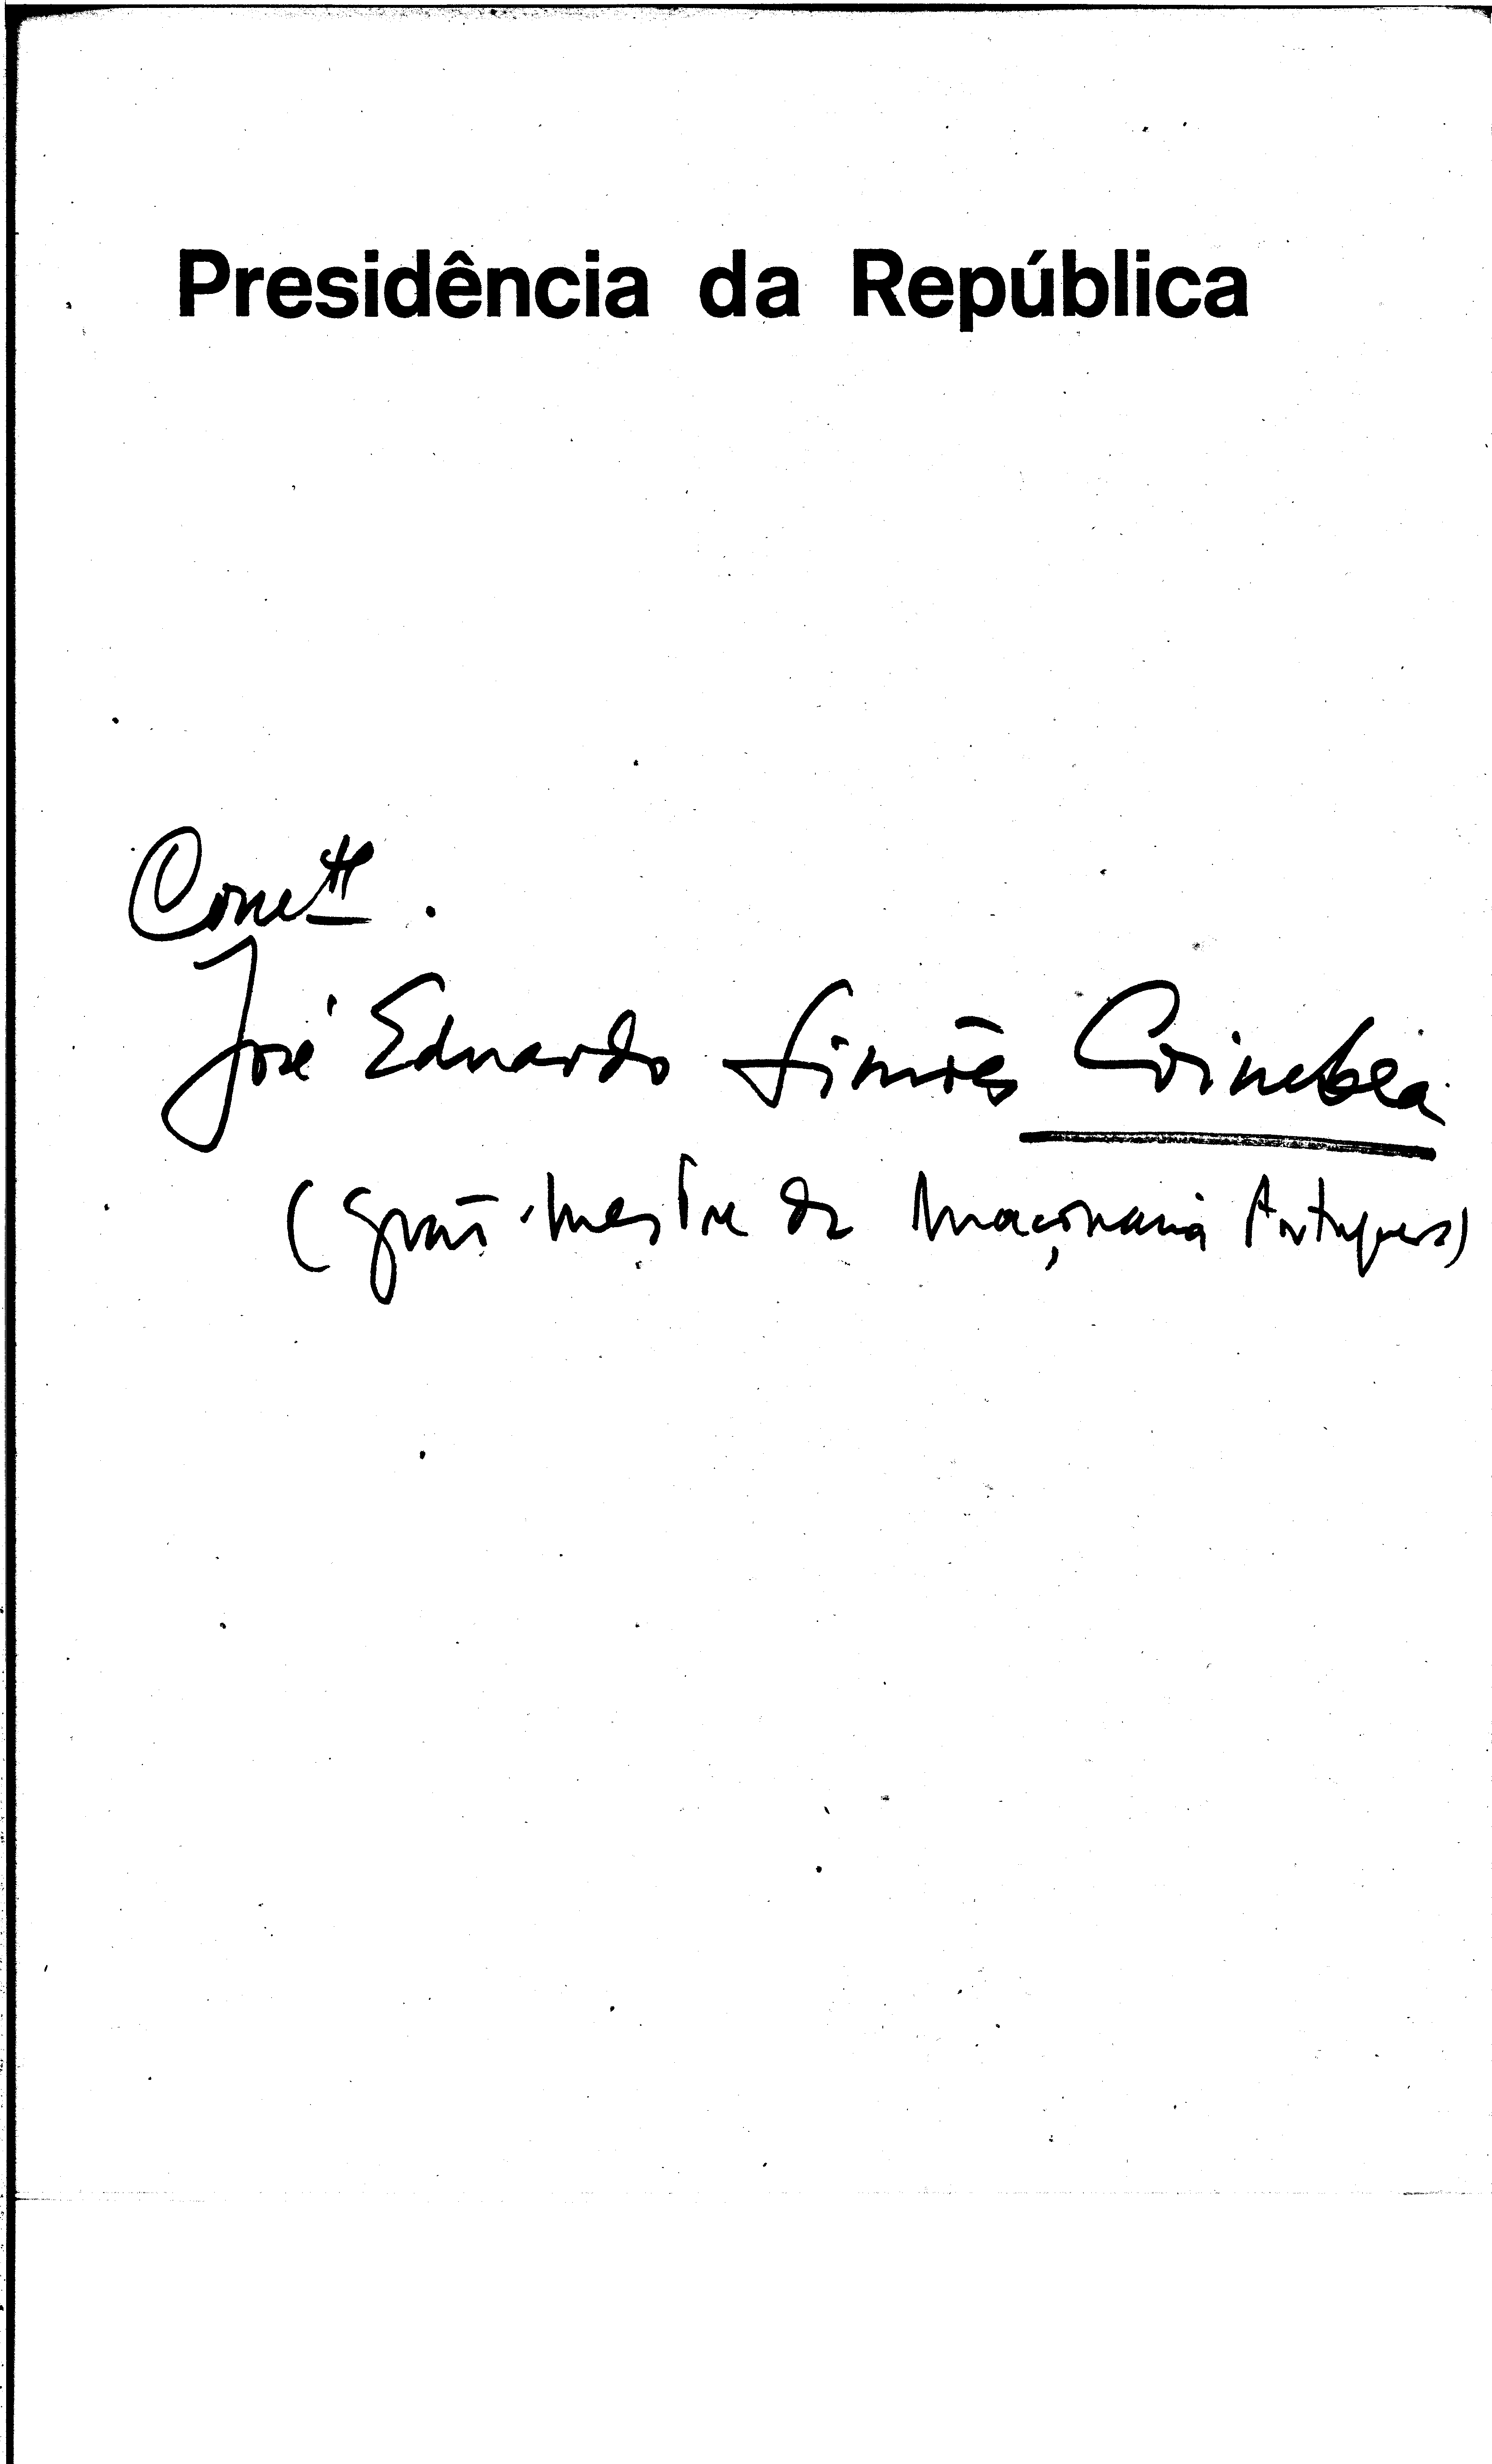 Presidência da República
José Eduardo Simões Coimbra
(grão-mestre da Maçonaria Portuguesa)